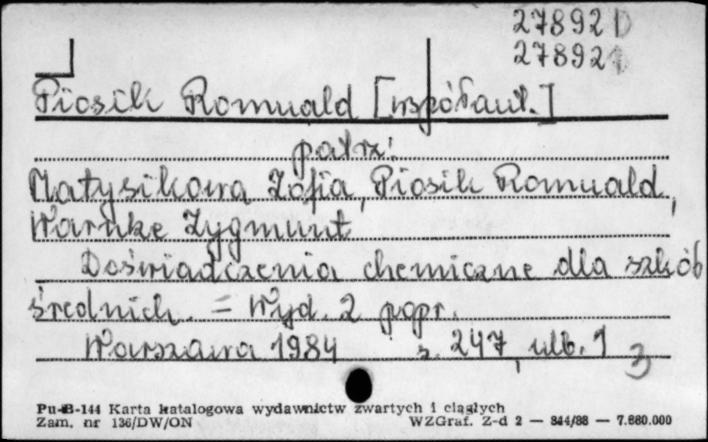 278921D
278921
Piosik Romuald [współaut.]
patrz:
Matysikowa Zofia, Piosik Romuald,
Warnke Zygmunt
Doświadczenia chemiczne dla szkół
średnich. = Wyd. 2 popr.
Warszawa 1984 s. 247, ulb. 1
3
Pu-B-144 Karta katalogowa wydawnictw zwartych i ciągłych
Zam. nr 136/DW/ON WZGraf. Z-d 2 — 344/88 — 7.660.000